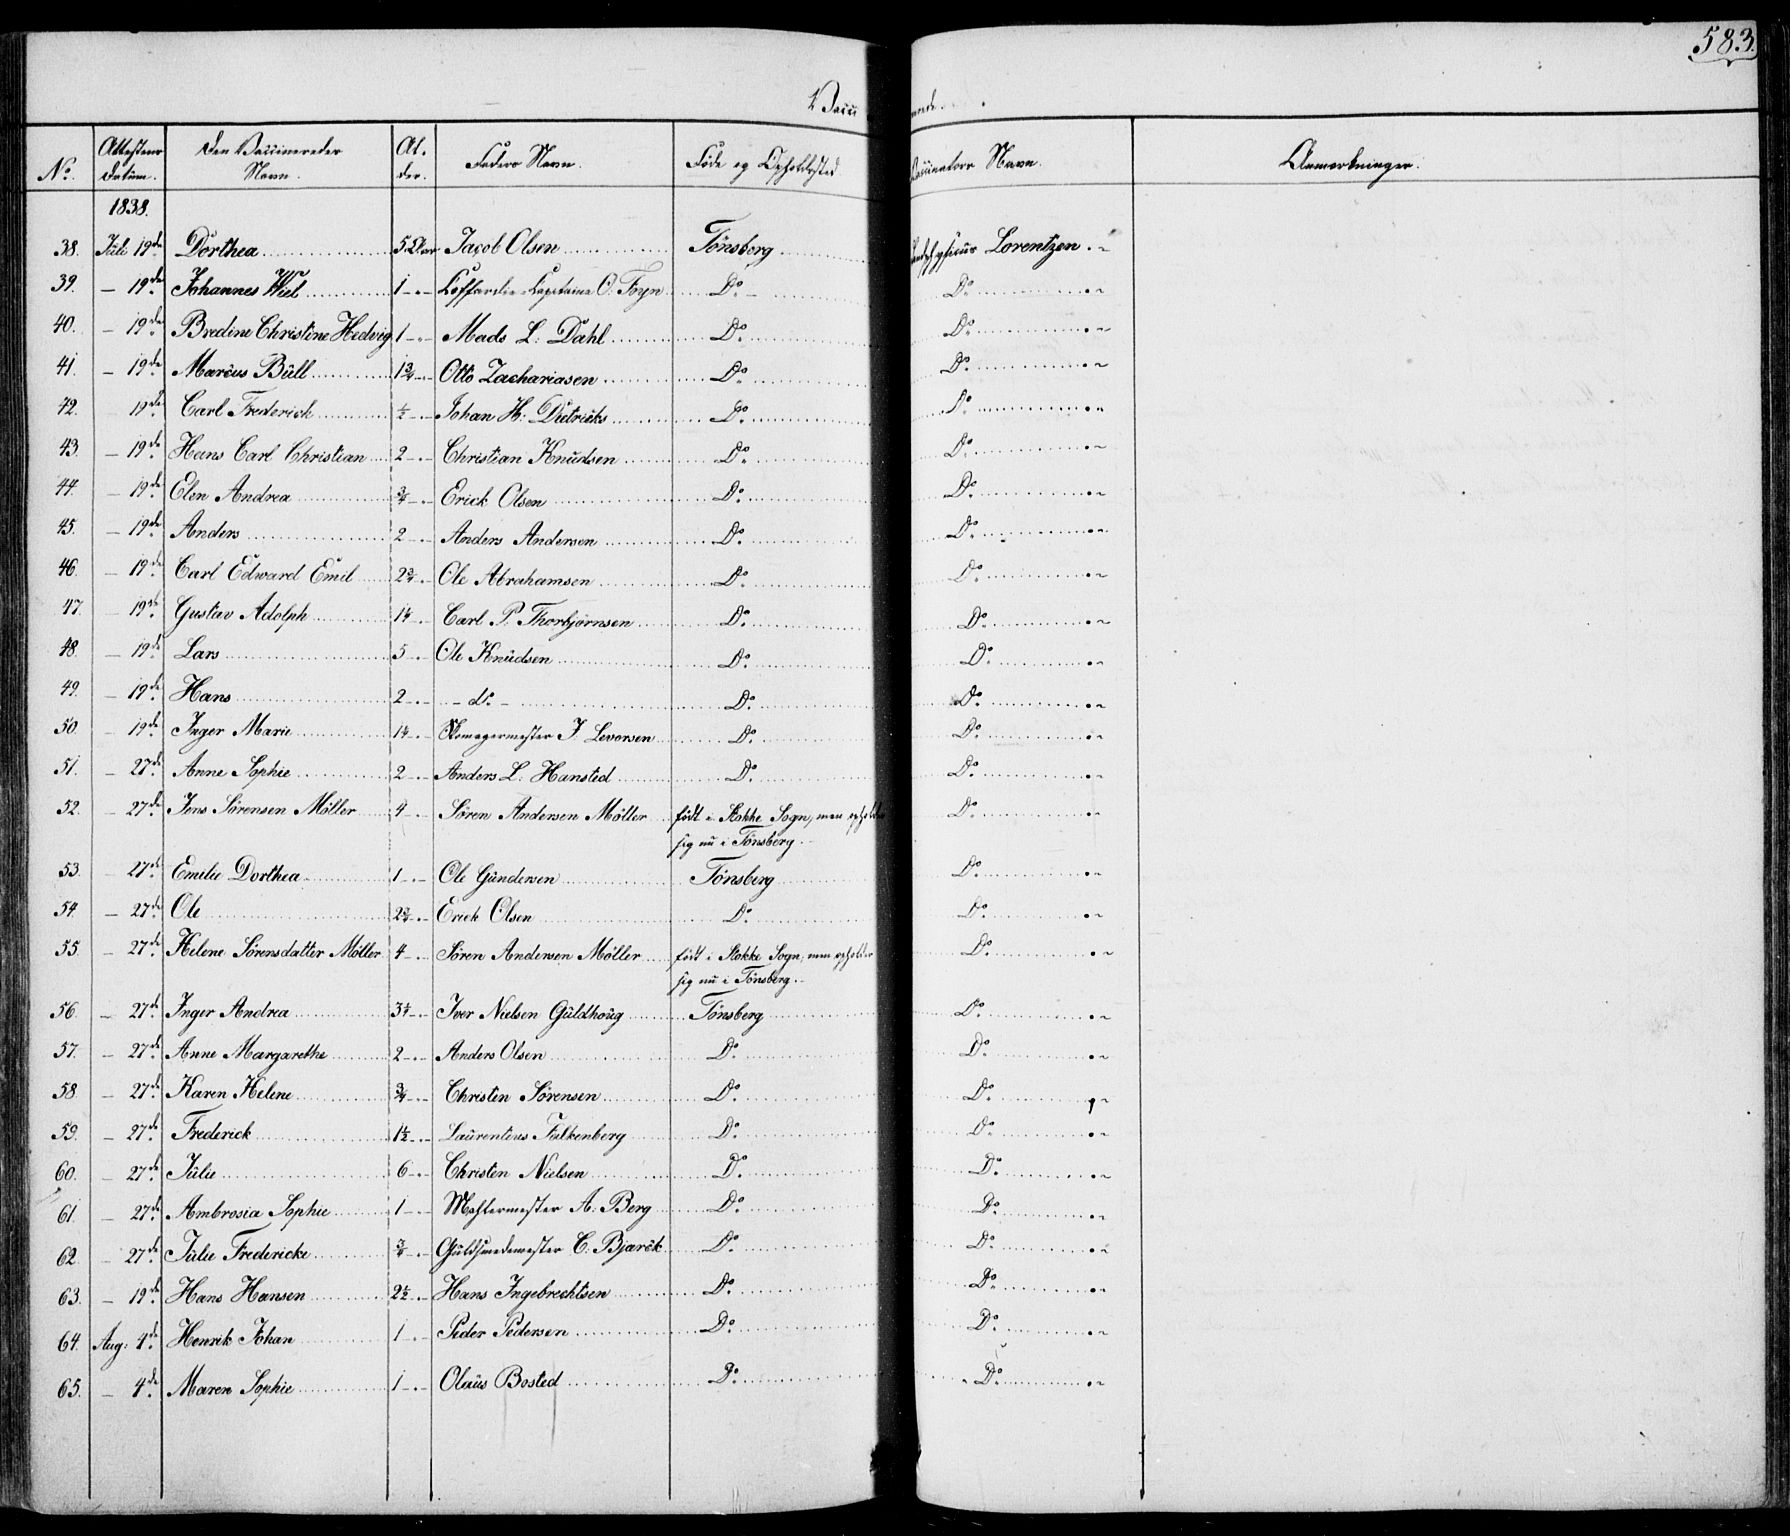 583.
Vacci nerede.
No. Attestens Datum. Den Vaccineredes Navn. Al- der. Faders Navn. Føde og Opholdssted Vaccinators Navn. Anmærkninger.
1838.
38. Juli 19de Dorthea 5 Aar Jacob Olsen Tönsberg Landphysicus Lorentzen
39. - 19de Johannes Wiel 1 -"- Koffardie-Kapitaine O. Foyn Do - Do "
40. - 19de Bredine Christine Hedvig 1 -"- Mads L: Dahl Do Do "
41. - 19de Marcus Büll 1¾ -"- Otto Zachariasen Do Do "
42. 19de Carl Frederick ½ -"- Johan H: Dietricks Do Do "
43. - 19de Hans Carl Christian 2 -"- Christian Knüdsen Do Do "
44. - 19de Elen Andrea ¾ -"- Erick Olsen Do Do "
45. - 19de Anders 2 -"- Anders Andersen Do Do "
46. - 19de Carl Edward Emil 2¾ -"- Ole Abrahamsen Do Do "
47. - 19de Gustav Adolph 1¼ -"- Carl P. Thorbjørnsen Do Do "
48. - 19de Lars 5 -"- Ole Knüdsen Do Do "
49. - 19de Hans 2 -"- - do - Do Do "
50. - 19de Inger Marie 1¼ -"- Skomagermester J. Levorsen Do Do "
51. - 27de Anne Sophie 2 -"- Anders L. Hansted Do Do "
52. - 27de Jens Sørensen Møller 4 -"- Søren Andersen Møller født i Stokke Sogn, men opholder Do "
sig nu i Tönsberg.
53. - 27de Emilie Dorthea 1 -"- Ole Gündersen Tönsberg Do "
54. - 27de Ole 2¾ -"- Erick Olsen Do Do "
55. - 27de Helene Sørensdatter Møller 4 -"- Søren Andersen Møller født i Stokke Sogn, men opholder Do "
sig nu i Tönsberg.
56. - 27de Inger Andrea 3¼ -"- Iver Nielsen Güldhoüg Tönsberg Do "
57. - 27de Anne Margarethe 2 -"- Anders Olsen Do Do "
58. - 27de Karen Helene ¾ -"- Christen Sørensen Do Do "
59. - 27de Frederick 1½ -"- Laurentius Falkenberg Do Do "
60. - 27de Jülie 6 -"- Christen Nielsen Do Do "
61. - 27de Ambrosia Sophie 1 -"- A. Berg Do Do "
62. - 27de Jülie Fredericke ¾ -"- Güldsmedemester C. Bjarck Do Do "
63. - 19de Hans Hansen 2½ -"- Hans Ingebrechtsen Do Do "
64. Aug: 4de Henrik Johan 1 -"- Peder Pedersen Do Do "
65. - 4de Maren Sophie 1 -"- Olaüs Bosted Do Do "